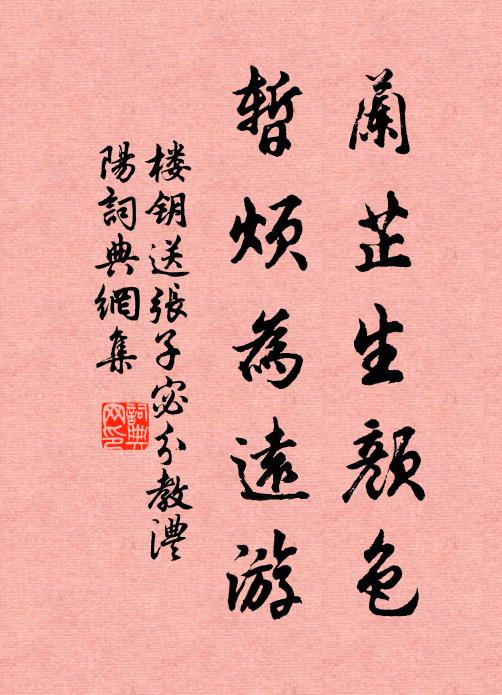 蘭芷生顔色
暫煩為遠游
楼钥送張子宓分教澧
陽詞典網集
詞典
网印